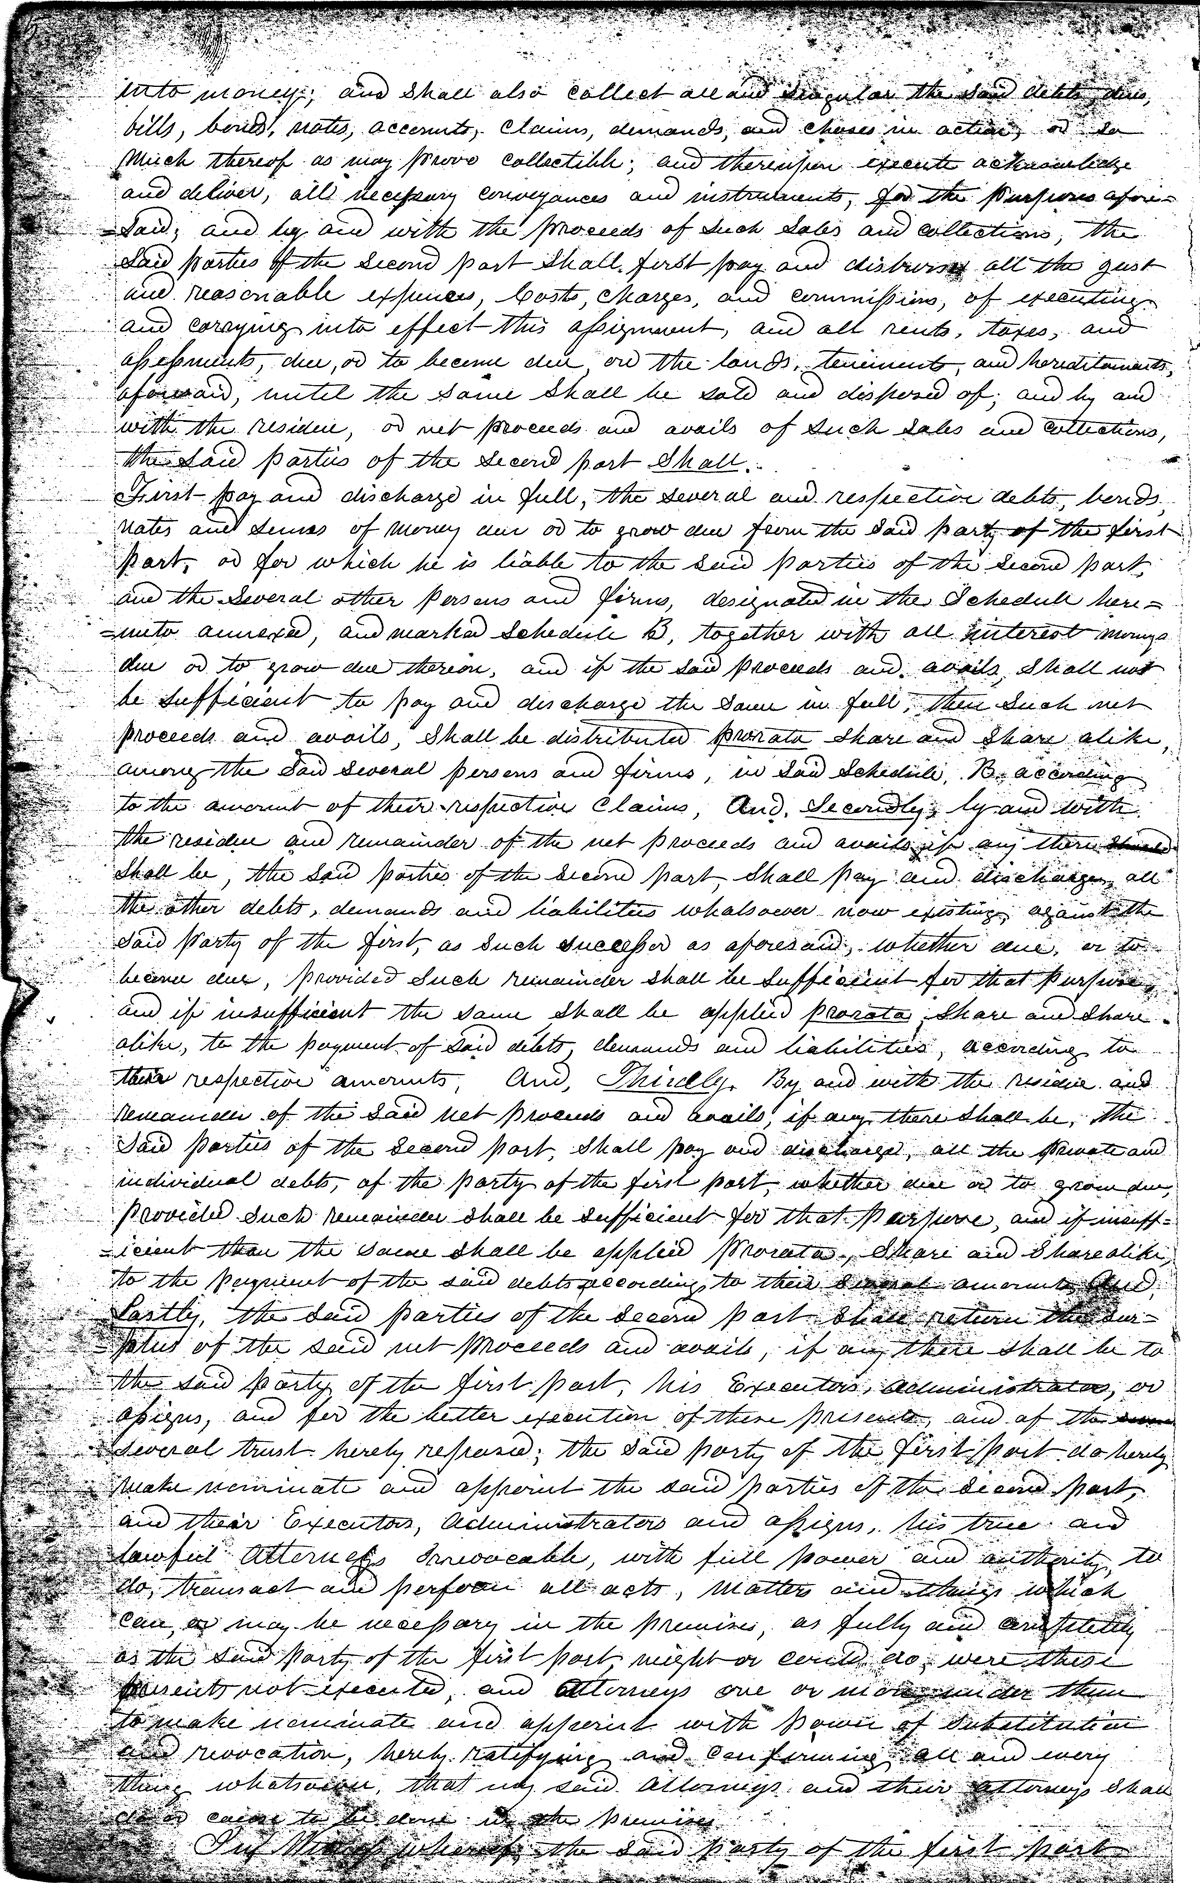 into money; and shall also collect all and singular the said debts, dues,
bills, bonds, notes, accounts, claims, demands, and choses in action, or so
much thereof as may prove collectible; and thereupon execute acknowledge
and deliver, all necessary conveyances and instruments, for the purposes afore=
=said; and by and with the proceeds of such sales and collections, the
said parties of the second part shall first pay and disburse all the just
and reasonable expences, Costs, charges, and commissions, of executing
and carrying into effect this assignment, and all rents, taxes, and
assessments, due, or to become due, on the lands, tenements, and hereditaments,
aforesaid, until the same shall be sold and disposed of; and by and
with the residue, or net proceeds and avails of such sales and collections,
the said parties of the second part Shall.
First pay and discharge in full, the several and respective debts, bonds,
notes and sums of money due or to grow due from the said party of the first
part, or for which he is liable to the said parties of the second part,
and the several other persons and firms, designated in the Schedule here=
=unto annexed, and marked Schedule B, together with all interest moneys
due or to grow due thereon, and if the said proceeds and avails, shall not
be sufficient to pay and discharge the same in full, then such net
proceeds and avails, shall be distributed prorata share and share alike,
among the said several persons and firms, in said Schedule, B. according
to the amount of their respective claims, And. Secondly; by and with
the residue and remainder of the net proceeds and avails if any there should
shall be, the said parties of the second part, shall pay and discharge, all
the other debts, demands and liabilities whatsoever now existing, against the
said party of the first, as such successor as aforesaid, whether due, or to
become due, provided such remainder shall be sufficient for that purpose,
and if insufficient the same shall be applied prorata, share and share
alike, to the payment of said debts, demands and liabilities, according to
their respective amounts, And, Thirdly. By and with the residue and
remainder of the said net proceeds and avails, if any there shall be, the
said parties of the second part, shall pay and discharge, all the private and
individual debts, of the party of the first part, whether due or to grow due,
provided such remainder shall be sufficient for that purpose, and if insuff=
=icient than the same shall be applied prorata, share and share alike,
to the payment of the said debts according to their several amounts, And,
Lastly, the said parties of the second part shall return the sur=
=plus of the said net proceeds and avails, if any there shall be to
the said party of the first part, his Executors, administrators, or
assigns, and for the better execution of these presents, and of the
several trust hereby reposed; the said party of the first part do hereby
make nominate and appoint the said parties of the second part,
and their Executors, Administrators and assigns, his true and
lawful Attorneys Irrevocable, with full power and authority, to
do, transact and perform all acts, matters and things which
can, or may be necessary in the premises, as fully and completely
as the said party of the first part might or could do, were these
presents not executed, and attorneys one or more under them
to make nominate and appoint with power of substitution
and revocation, hereby ratifying and confirming all and every
thing whatsoever, that my said attorneys and their attorneys shall
do or cause to be done in the premises
In Witness whereof, the said party of the first part